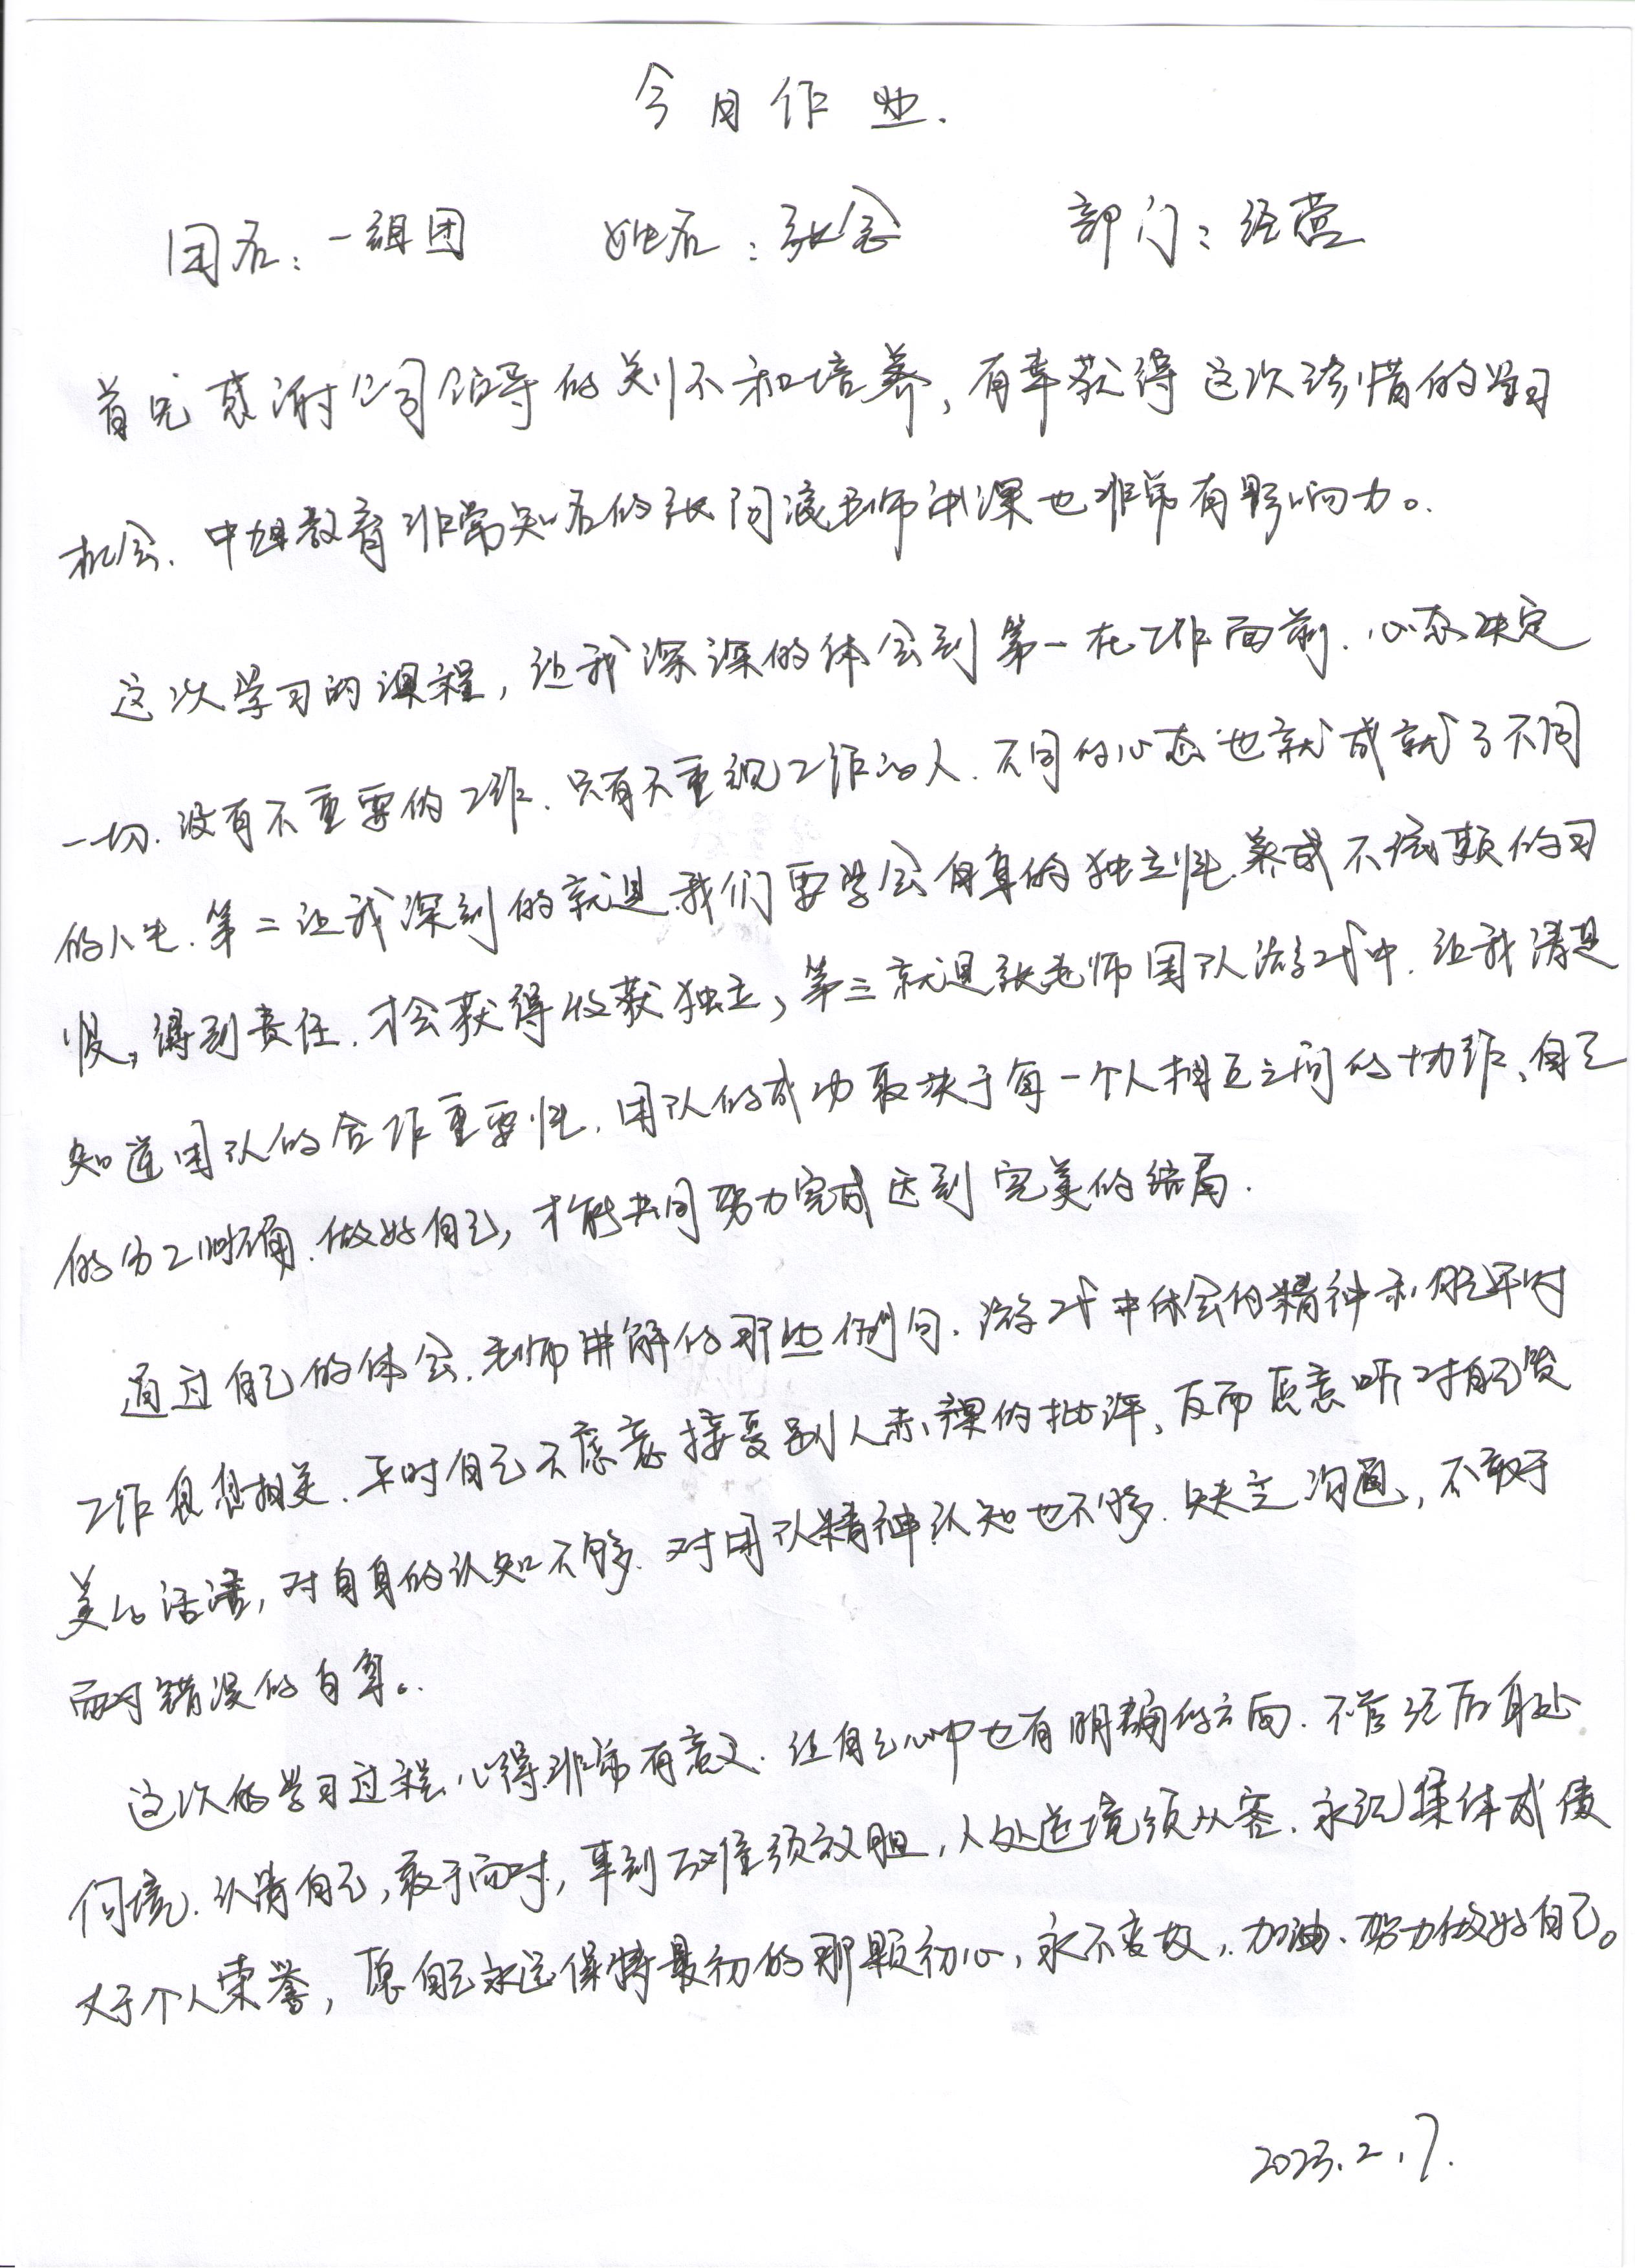 今日作业.
团名：一组团 姓名：张念 部门：经营
首先感谢公司领导的关怀和培养，有幸获得这次珍惜的学习
机会、中旭教育非常知名的张闯滨老师讲课也非常有影响力。
这次学习的课程，让我深深的体会到第一在工作面前.心态决定
一切.没有不重要的工作.只有不重视工作的人.不同的心态也就成就了不同
的人生.第二让我深刻的就是.我们要学会自身的独立性.养成不依赖的习
惯,得到责任.才会获得收获独立，第三就是张老师团队游戏中.让我清楚
知道团队的合作重要性.团队的成功取决于每一个人相互之间的协作、自己
的分工明确.做好自己，才能共同努力完成达到完美的结局.
通过自己的体会.老师讲解的那些例句.游戏中体会的精神和自己平时
工作息息相关.平时自己不愿意接受别人赤裸的批评、反而愿意听对自己赞
美的话语，对自身的认知不够.对团队精神认知也不够.缺乏沟通，不敢于
面对错误的自尊。
这次的学习过程心得.非常有意义.让自己心中也有明确的方向.不管经后身处
何境.认清自己，敢于面对，事到万难须放胆，人处逆境须从容.永记集体成绩
大于个人荣誉，愿自己永远保持最初的那颗初心，永不言败，加油、努力做好自己。
2023.2.7.